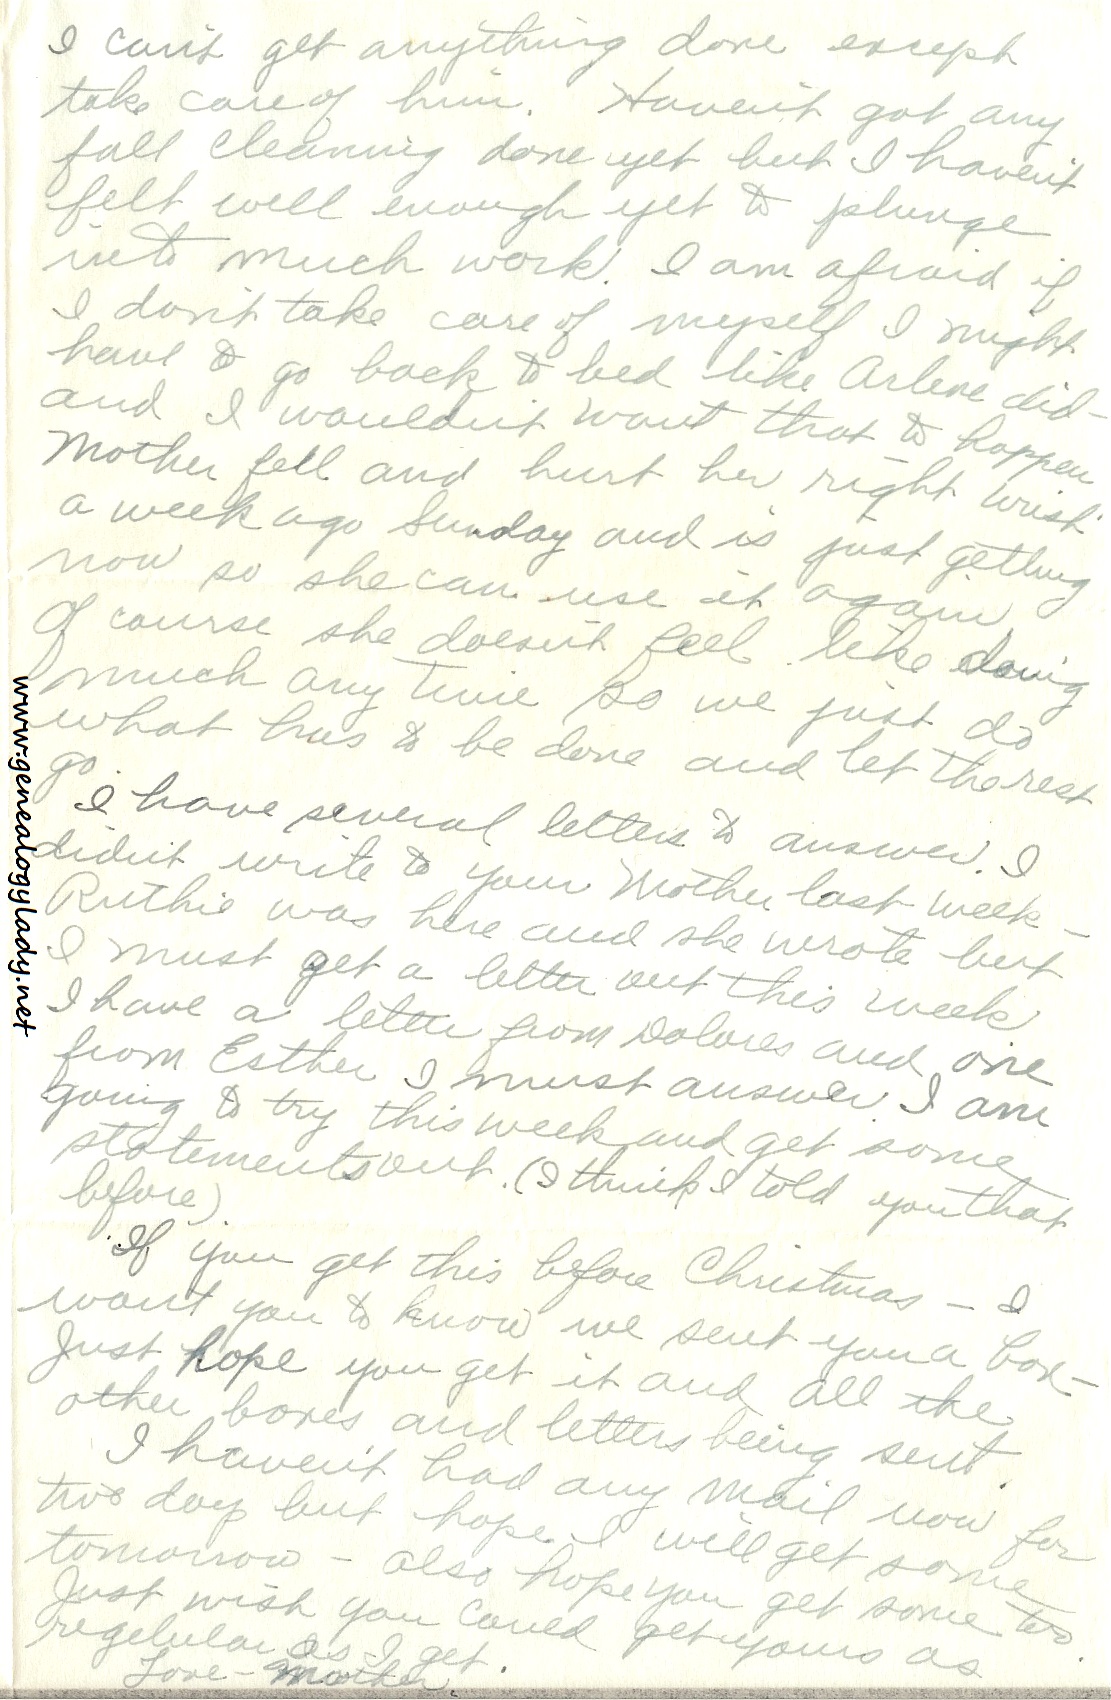 I can't get anything done except
take care of him. Haven't got any
fall cleaning done yet but I haven't
felt well enough yet to plunge
into much work. I am afraid if
I don't take care of myself I might
have to go back to bed like Arlene did -
and I wouldn't want that to happen
Mother fell and hurt her right wrist
a week ago Sunday and is just getting
now so she can use it again
Of course she doesn't feel like doing
much any time so we just do
what has to be done and let the rest
go.
I have several letters to answer. I
didn't write to your Mother last week -
Ruthie was here and she wrote but
I must get a letter out this week
I have a letter from Dolores and one
from Esther I must answer. I am
going to try this week and get some
statements out. (I think I told you that
before)
If you get this before Christmas - I
want you to know we sent you a box -
Just hope you get it and all the
other boxes and letters being sent.
I haven't had any mail now for
two day but hope I will get some
tomorrow - also hope you get some too.
Just wish you could get yours as
regelular as I get.
Love - Mother.
www.genealogylady.net